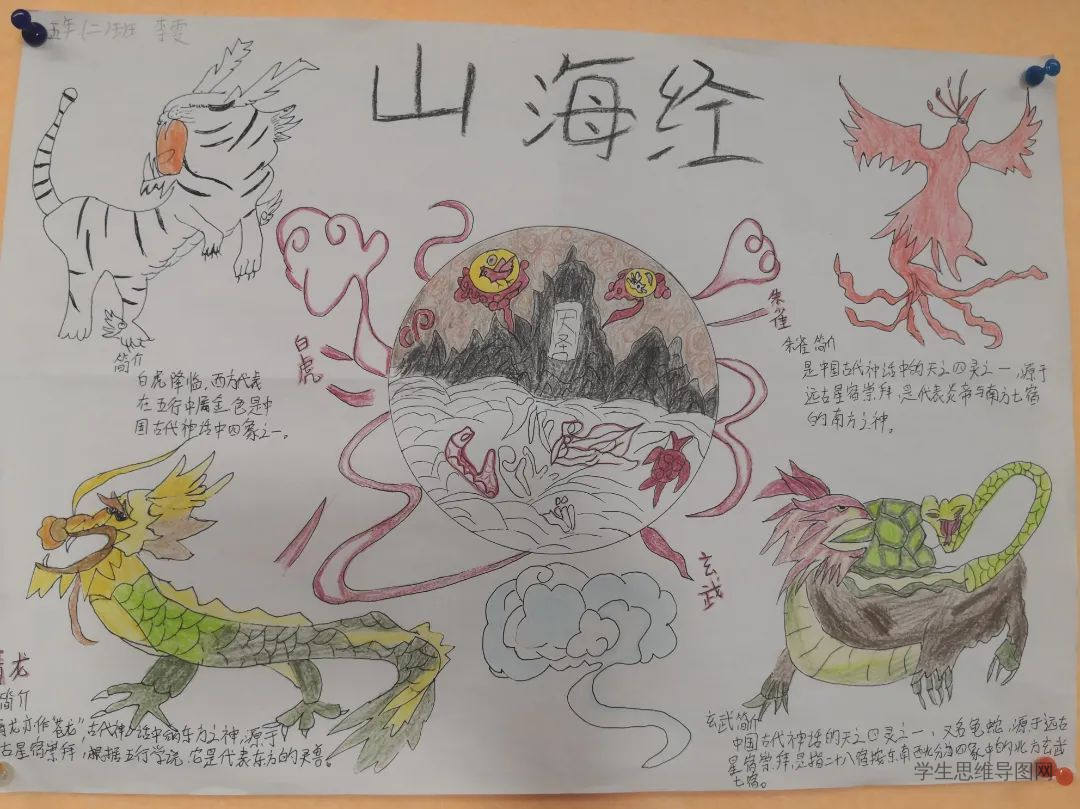 五年(二)班 李雯
山海经
白虎
简介
白虎降临,西方代表
在五行中属金,色是中
国古代神话中四象之一。
朱雀
朱雀简介
是中国古代神话中的天之四灵之一,源于
远古星宿崇拜,是代表炎帝与南方七宿
的南方之神。
青龙
简介
青龙亦作“苍龙”,古代神话中的东方之神,源于
古星宿崇拜,根据五行学说,它是代表东方的灵兽。
玄武
玄武简介
中国古代神话的天之四灵之一,又名龟蛇,源于远古
星宿崇拜,是指二十八宿按东南西北分为四象中的北方玄武
七宿。
学生思维导图网